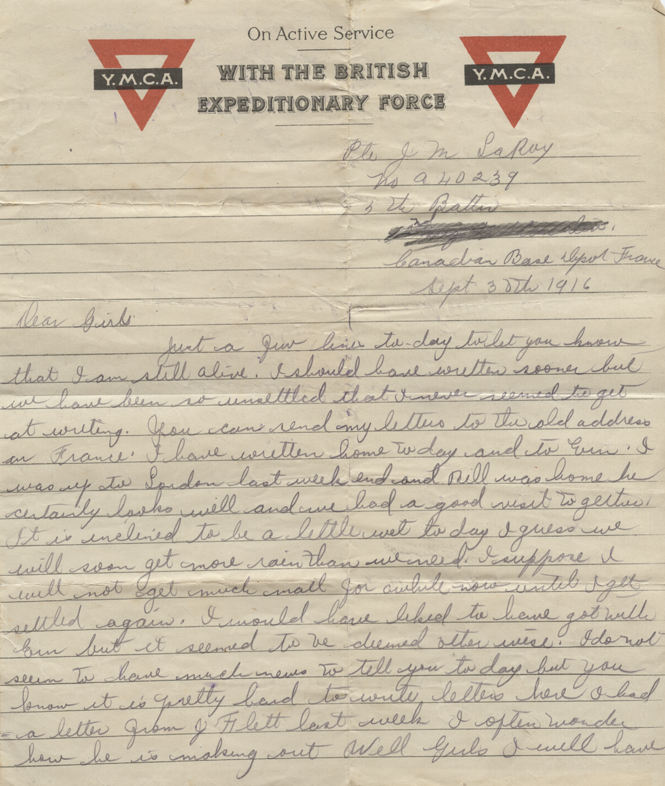 On Active Service
WITH THE BRITISH
EXPEDITIONARY FORCE
Y.M.C.A.
Y.M.C.A.
Pte J M LaRoy
No a 40239
Battn
Canadian Base Depot France
Sept 30th 1916
Dear Girls
Just a few lines to-day to let you know
that I am still alive. I should have written sooner but
we have been so unsettled that I never seemed to get
at writing. You can send my letters to the old address
in France. I have written home today and to Ern. I
was up to London last week end and Bill was home he
certainly looks well and we had a good visit together.
It is inclined to be a little wet to day I guess we
will soon get more rain than we need. I suppose I
will not get much mail for awhile now until I get
settled again. I would have liked to have got with
Ern but it seemed to be deemed other wise. I do not
seem to have much news to tell you to day but you
know it is pretty hard to write letters here I had
a letter from J Flett last week I often wonder
how he is making out Well Girls I will have